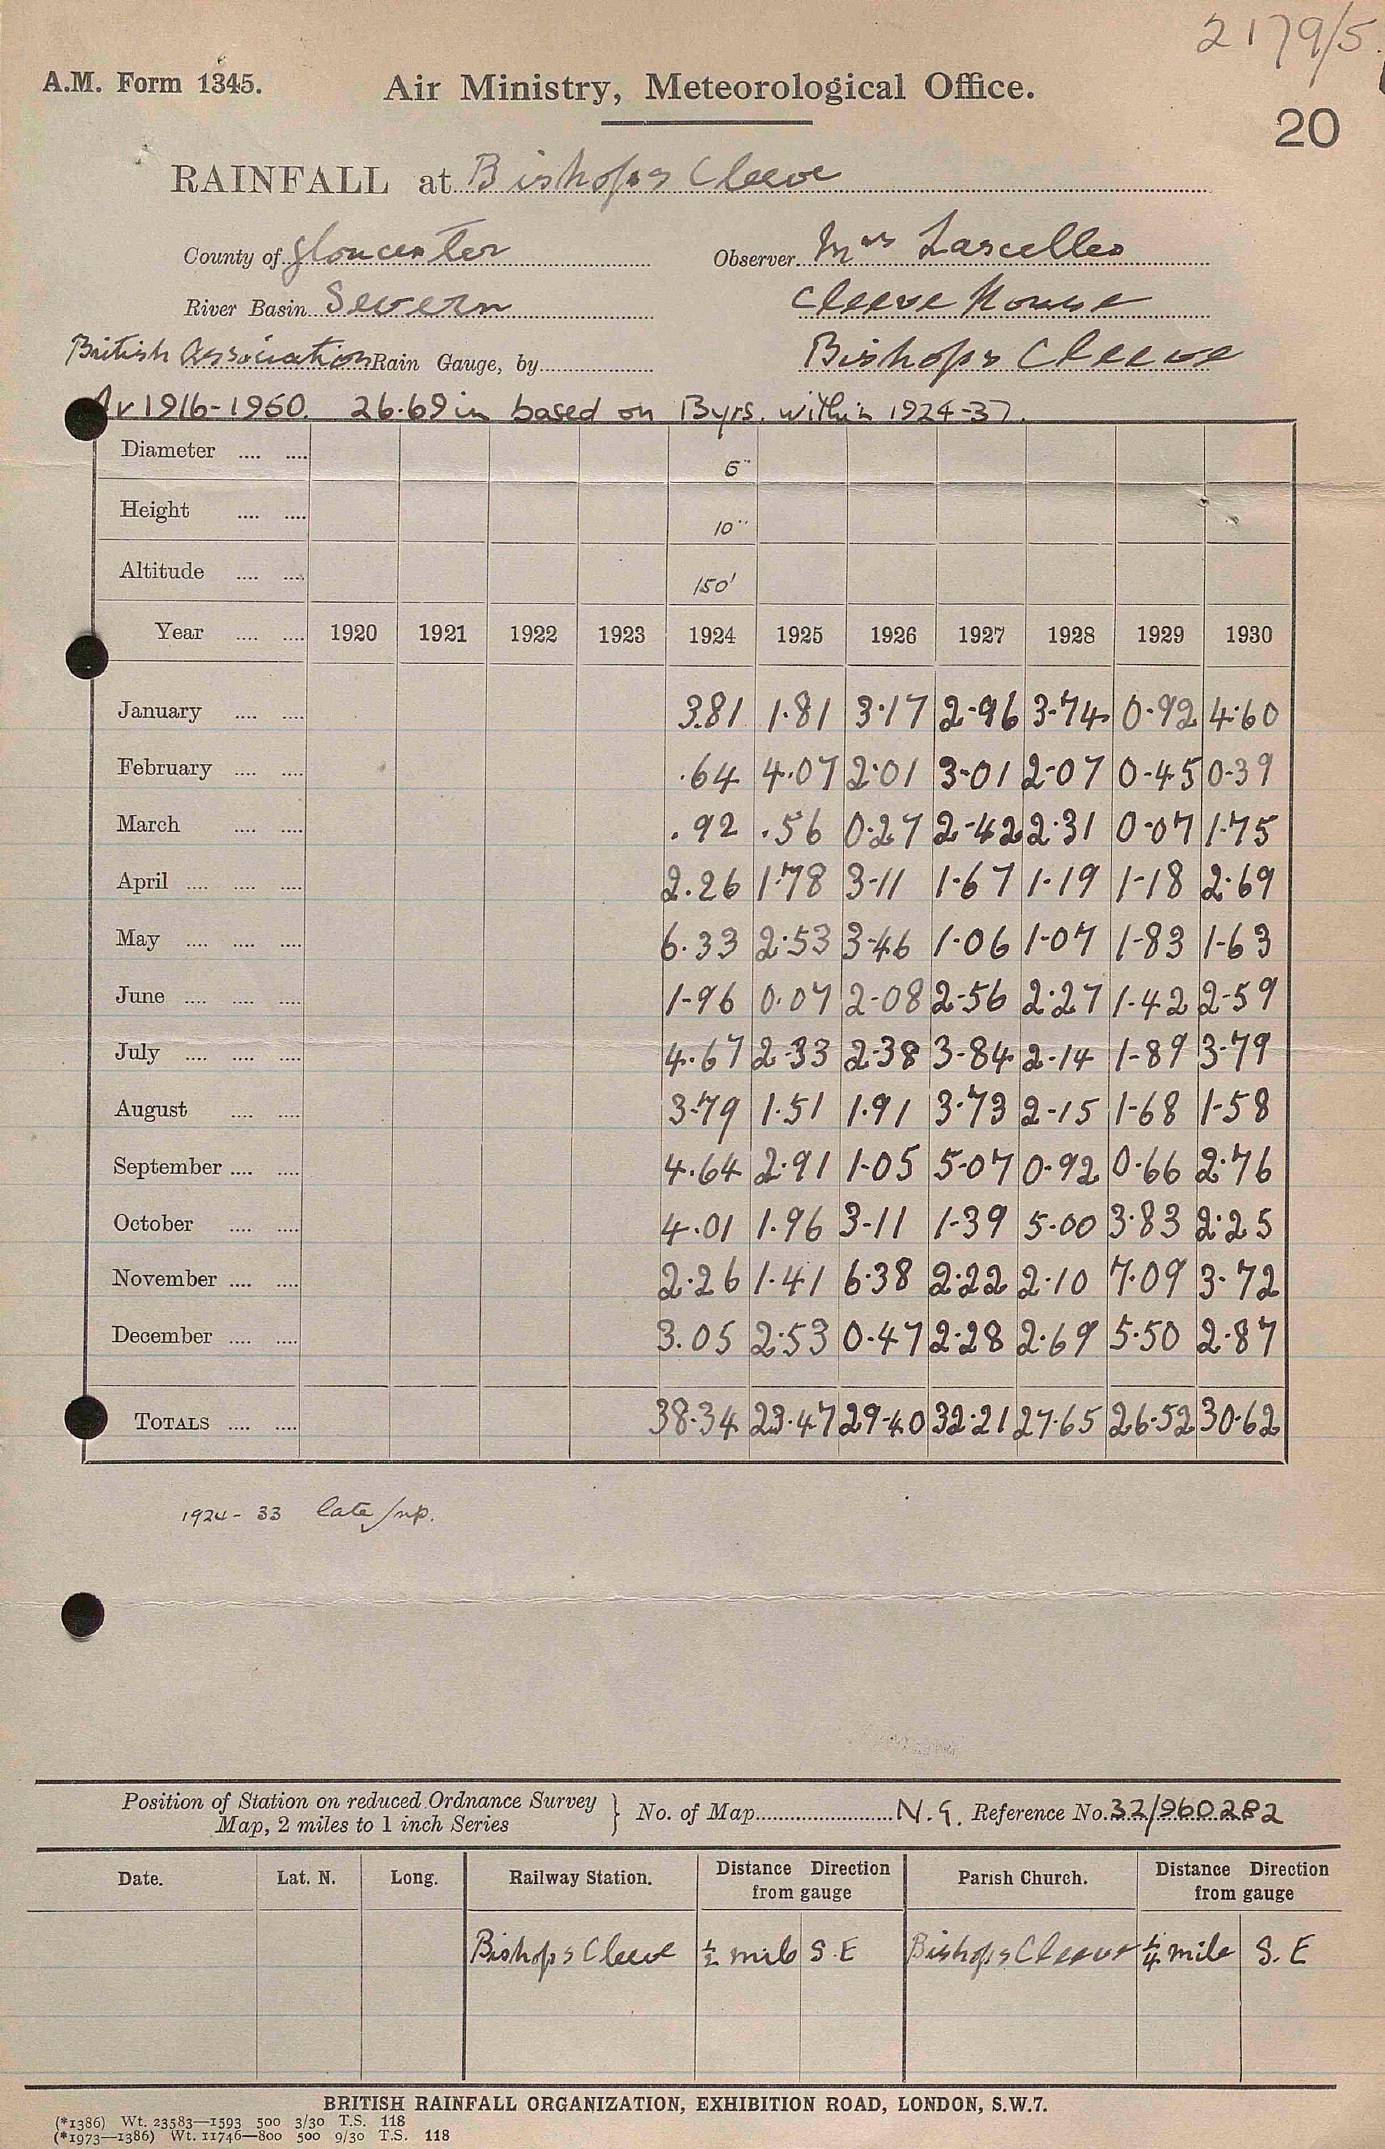 2179/5.
A.M. Form 1345.
Air Ministry, Meteorological Office.
20
RAINFALL at Bishops Cleeve
County of Gloucester Observer Mrs Lascelles
River Basin Severn Cleeve House
British Association Rain Gauge, by Bishops Cleeve
Av 1916-1950. 26.69 in based on 13 yrs. within 1924-37.
Diameter .... .... 5"
Height .... .... 10"
Altitude .... .... 150'
Year .... .... 1920 1921 1922 1923 1924 1925 1926 1927 1928 1929 1930
January .... .... 3.81 1.81 3.17 2.96 3.74 0.92 4.60
February .... .... .64 4.07 2.01 3.01 2.07 0.45 0.39
March .... .... .92 .56 0.27 2.42 2.31 0.07 1.75
April .... .... .... 2.26 1.78 3.11 1.67 1.19 1.18 2.69
May .... .... .... 6.33 2.53 3.46 1.06 1.07 1.83 1.63
June .... .... .... 1.96 0.07 2.08 2.56 2.27 1.42 2.59
July .... .... .... 4.67 2.33 2.38 3.84 2.14 1.89 3.79
August .... .... 3.79 1.51 1.91 3.73 2.15 1.68 1.58
September .... .... 4.64 2.91 1.05 5.07 0.92 0.66 2.76
October .... .... 4.01 1.96 3.11 1.39 5.00 3.83 2.25
November .... .... 2.26 1.41 6.38 2.22 2.10 7.09 3.72
December .... .... 3.05 2.53 0.47 2.28 2.69 5.50 2.87
TOTALS .... .... 38.34 23.47 29.40 32.21 27.65 26.52 30.62
1924-33 late
Position of Station on reduced Ordnance Survey
Map, 2 miles to 1 inch Series } No. of Map N.G. Reference No. 32/960282
Date. Lat. N. Long. Railway Station. Distance Direction from gauge Parish Church. Distance Direction from gauge
Bishops Cleeve ½ mile S.E Bishops Cleeve ¼ mile S.E
BRITISH RAINFALL ORGANIZATION, EXHIBITION ROAD, LONDON, S.W.7.
(*1386) Wt. 23583—1593 500 3/30 T.S. 118
(*1973—1386) Wt. 11746—800 500 9/30 T.S. 118